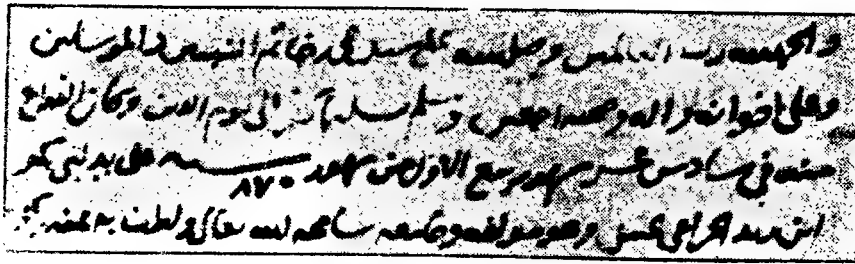 والحمد لله رب العالمين وصلى الله على سيدنا محمد خاتم النبيين والمرسلين
وعلى اخوانه واله وصحبه اجمعين وسلم تسليما كثيرا الى يوم الدين وكان الفراغ
منه في سادس عشر شهر ربيع الاول من شهور سنة ٨٧٠ على يد ابي بكر
ابن زيد الجراعي الحنبلي وهو مولفه وجامعه سامحه الله تعالى ولطف به بمنه